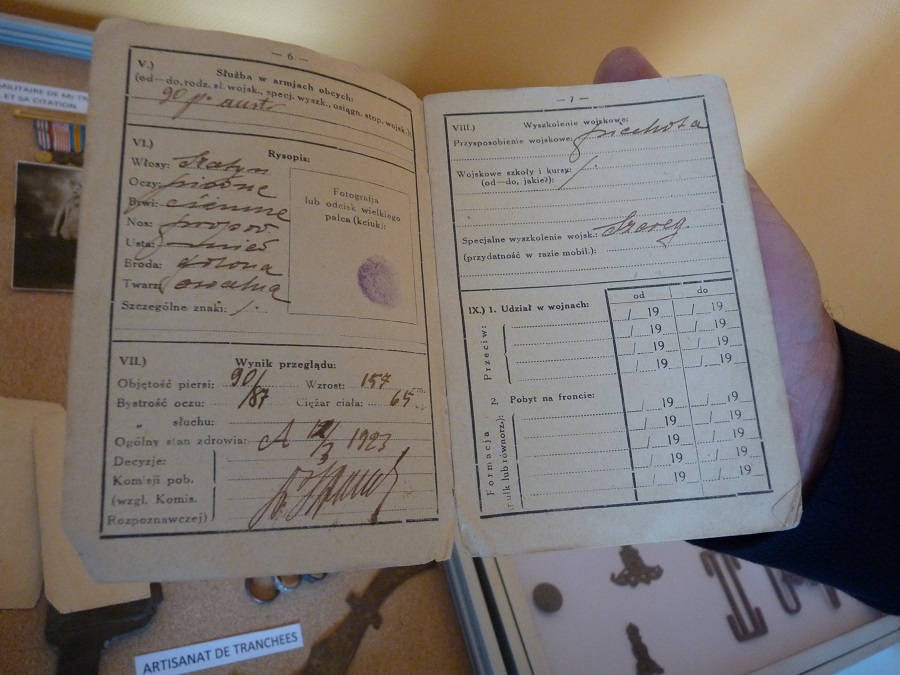 MILITAIRE DE
ET SA CITATION
— 6 —
V.) Służba w armjach obcych:
(od—do, rodz. sł. wojsk., specj. wyszk., osiągn. stop. wojsk.):
90 p. austr
VI.) Rysopis:
Włosy: Szatyn
Oczy: piwne
Brwi: ciemne
Nos: propor
Usta:
Broda: golona
Twarz: owalna
Szczególne znaki: /.
Fotografja
lub odcisk wielkiego
palca (kciuk):
VII.) Wynik przeglądu:
Objętość piersi: 90/ Wzrost: 157
Bystrość oczu: /87 Ciężar ciała: 65
" słuchu:
Ogólny stan zdrowia: A 1923
Decyzje:
Komisji pob.
(wzgl. Komis.
Rozpoznawczej)
— 7 —
VIII.) Wyszkolenie wojskowe:
Przysposobienie wojskowe: piechota
Wojskowe szkoły i kursy: /.
(od—do, jakie?):
Specjalne wyszkolenie wojsk.: Szereg.
(przydatność w razie mobil.):
IX.) 1. Udział w wojnach:
od do
Przeciw:
/ 19 / 19
/ 19 / 19
/ 19 / 19
/ 19 / 19
2. Pobyt na froncie:
Formacja
(pułk lub równorz.):
/ 19 / 19
/ 19 / 19
/ 19 / 19
/ 19 / 19
/ 19 / 19
ARTISANAT DE TRANCHEES